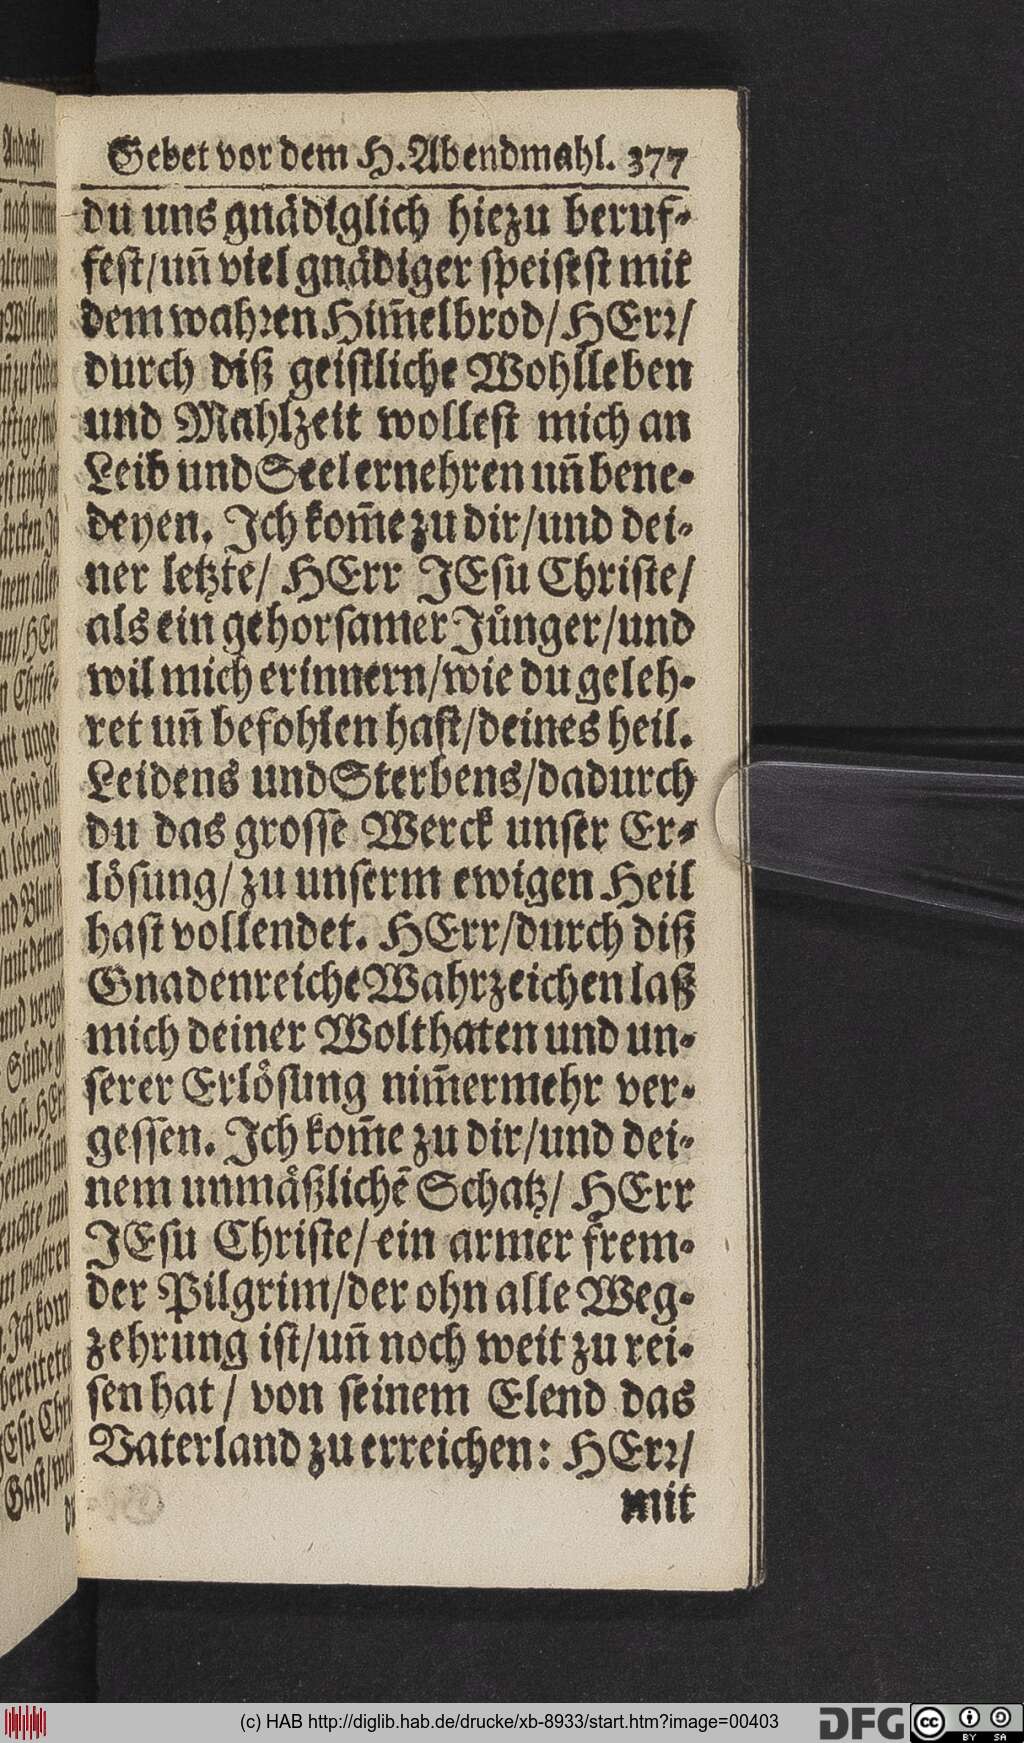 Gebet vor dem H. Abendmahl. 377
du uns gnädiglich hiezu beruf-
fest/uñ viel gnädiger speisest mit
dem wahren Him̃elbrod/HErr/
durch diß geistliche Wohlleben
und Mahlzeit wollest mich an
Leib und Seel ernehren uñ bene-
deyen. Ich kom̃e zu dir/und dei-
ner letzte/ HErr JEsu Christe/
als ein gehorsamer Jünger/und
wil mich erinnern/wie du geleh-
ret uñ befohlen hast/deines heil.
Leidens und Sterbens/dadurch
du das grosse Werck unser Er-
lösung/ zu unserm ewigen Heil
hast vollendet. HErr/durch diß
Gnadenreiche Wahrzeichen laß
mich deiner Wolthaten und un-
serer Erlösung nim̃ermehr ver-
gessen. Ich kom̃e zu dir/und dei-
nem unmäßlichẽ Schatz/ HErr
JEsu Christe/ ein armer frem-
der Pilgrim/der ohn alle Weg-
zehrung ist/uñ noch weit zu rei-
sen hat/ von seinem Elend das
Vaterland zu erreichen: HErr/
mit
(c) HAB http://diglib.hab.de/drucke/xb-8933/start.htm?image=00403
DFG
cc BY SA